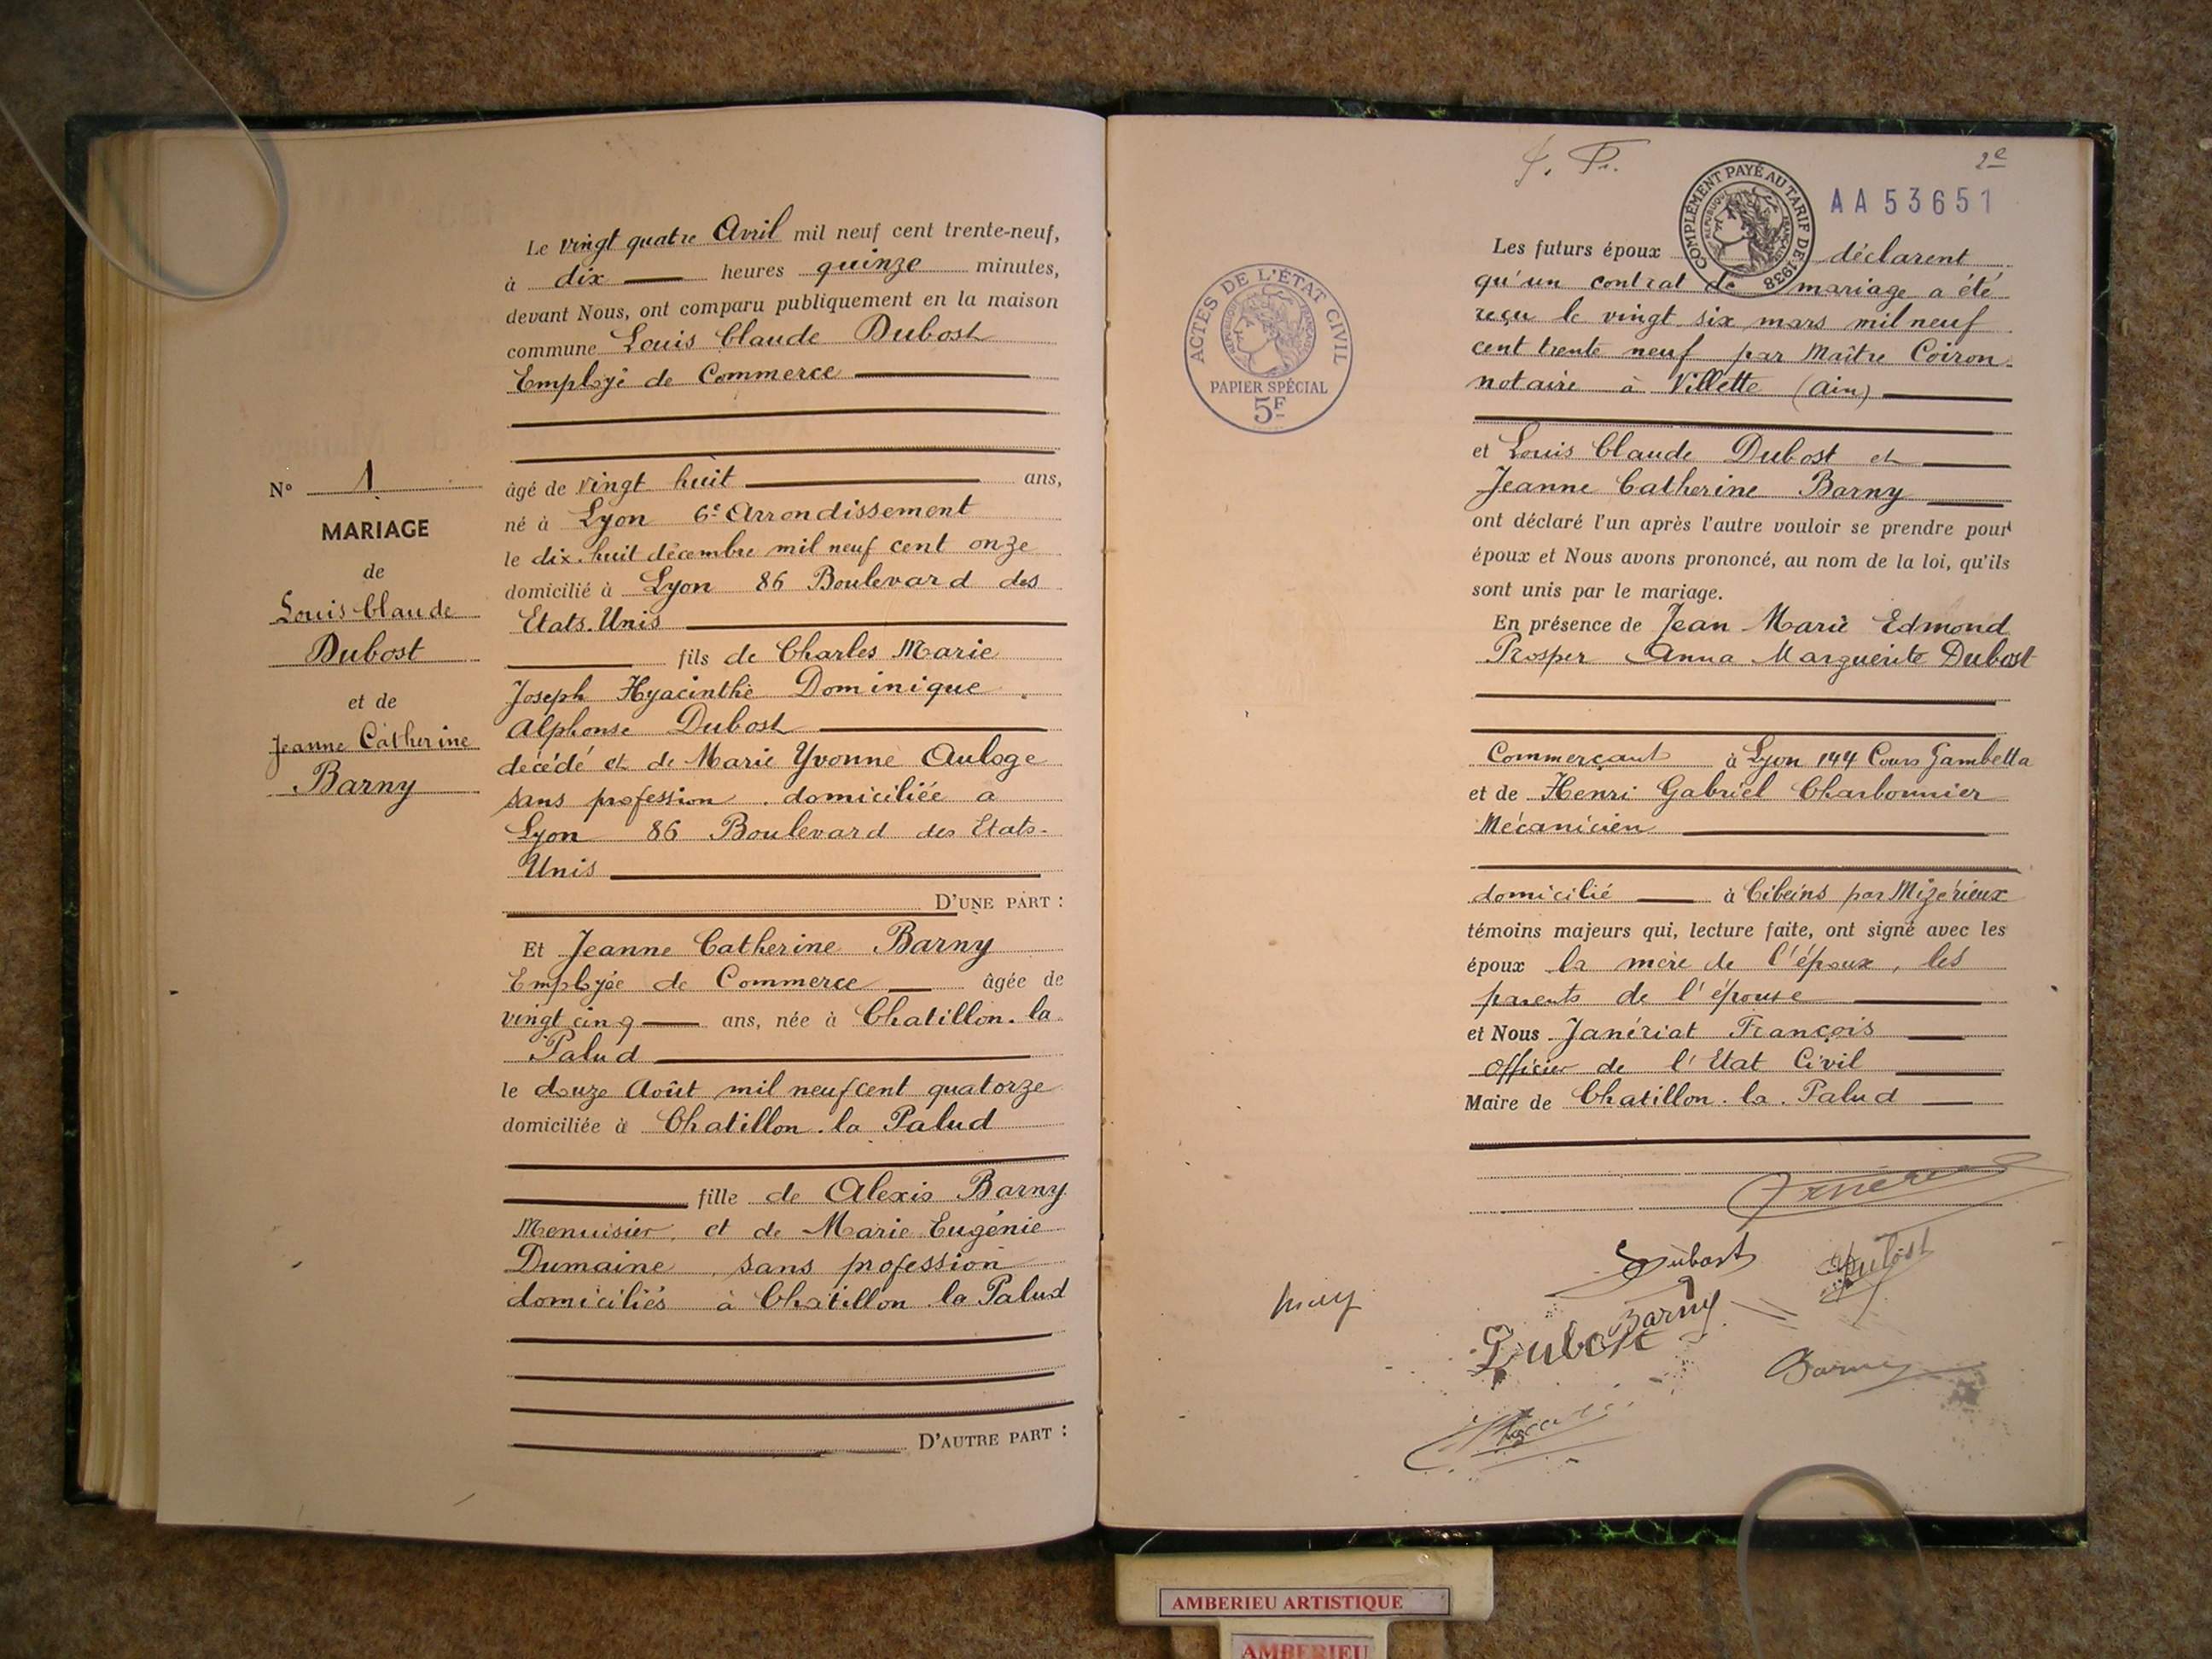 Le vingt quatre Avril mil neuf cent trente-neuf,
à dix heures quinze minutes,
devant Nous, ont comparu publiquement en la maison
commune Louis Claude Dubost
Employé de Commerce
âgé de vingt huit ans,
né à Lyon 6e Arrondissement
le dix-huit décembre mil neuf cent onze
domicilié à Lyon 86 Boulevard des
Etats-Unis
fils de Charles Marie
Joseph Hyacinthe Dominique
Alphonse Dubost
décédé et de Marie Yvonne Auloge
sans profession . domiciliée a
Lyon 86 Boulevard des Etats-
Unis
D'UNE PART :
Et Jeanne Catherine Barny
Employée de Commerce âgée de
vingt cinq ans, née à Chatillon-la
Palud
le douze Août mil neuf cent quatorze
domiciliée à Chatillon-la Palud
fille de Alexis Barny
Menuisier, et de Marie Eugénie
Dumaine, sans profession
domiciliés à Chatillon la Palud
D'AUTRE PART :
N° 1
MARIAGE
de
Louis Claude
Dubost
et de
Jeanne Catherine
Barny
2e
COMPLÉMENT PAYÉ AU TARIF DE 1938
RÉPUBLIQUE FRANÇAISE
AA53651
ACTES DE L'ÉTAT CIVIL
RÉPUBLIQUE FRANÇAISE
PAPIER SPÉCIAL
5F
Les futurs époux déclarent
qu'un contrat de mariage a été
reçu le vingt six mars mil neuf
cent trente neuf par Maître Coiron
notaire à Villette (Ain)
et Louis Claude Dubost et
Jeanne Catherine Barny
ont déclaré l'un après l'autre vouloir se prendre pour
époux et Nous avons prononcé, au nom de la loi, qu'ils
sont unis par le mariage.
En présence de Jean Marie Edmond
Prosper Anna Marguerite Dubost
Commerçant à Lyon 144 Cours Gambetta
et de Henri Gabriel Charbonnier
Mécanicien
domicilié à Cibeins par Mizérieux
témoins majeurs qui, lecture faite, ont signé avec les
époux la mère de l'époux, les
parents de l'épouse
et Nous Janériat François
Officier de l'Etat Civil
Maire de Chatillon-la-Palud
Dubost
Dubost
Barny
Dubost
Barny
AMBERIEU ARTISTIQUE
AMBERIEU